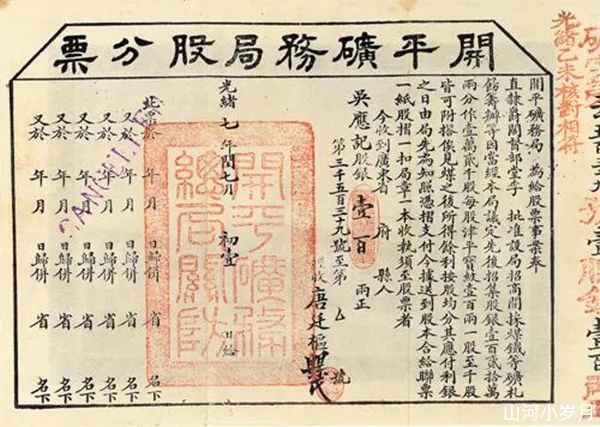 開平礦務局股分票
光緒乙未核對相符
壹股銀壹百
開平礦務局 為給股票事案奉
直隸爵閣督部堂李 批准設局招商開採煤鐵等礦札
飭籌辦等因當經本局議定先後招集股銀壹百貳拾萬
兩分作壹萬貳千股每股津平寶紋壹百兩一股至千股
皆可附搭俟見煤之後所得餘利按股均分其應付利銀
之日由局先為知照憑摺支付今據送到股本合給聯票
一紙股摺一扣局章一本收執須至股票者
今收到廣東省 府 縣人
吳應記股銀壹百兩正
第三千五百三十九號至第 號
收唐廷樞
光緒七年閏七月初壹日給
開平礦務總局關防
此票於 年 月 日歸併 省 名下
又於 年 月 日歸併 省 名下
又於 年 月 日歸併 省 名下
又於 年 月 日歸併 省 名下
又於 年 月 日歸併 省 名下
又於 年 月 日歸併 省 名下
CANCELLED
山河小岁月